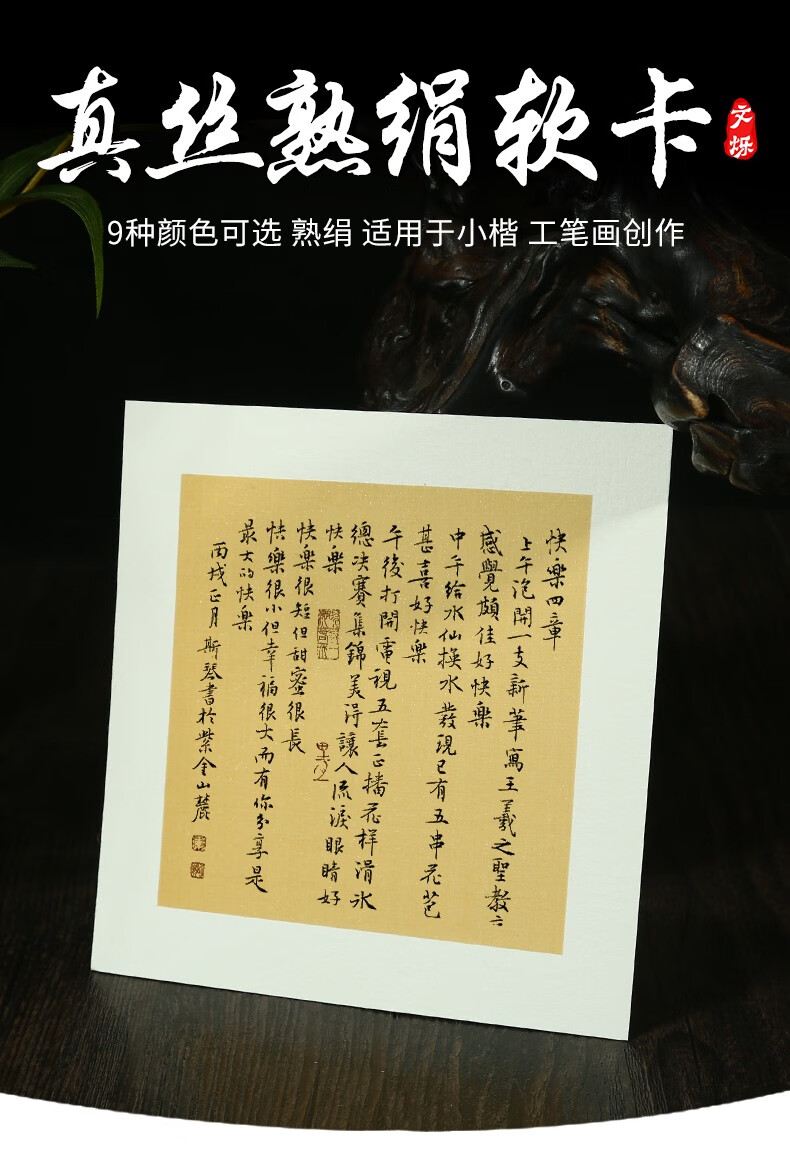 真丝熟绢软卡
文烁
9种颜色可选 熟绢 适用于小楷 工笔画创作
快樂四章
上午泡開一支新筆寫王羲之聖教序
感覺頗佳好快樂
中午給水仙換水發現已有五串花苞
甚喜好快樂
午後打開電視五套正播花样滑冰
總决賽集錦美得讓人流淚眼睛好
快樂
快樂很短但甜蜜很長
快樂很小但幸福很大而有你分享是
最大的快樂
丙戌正月斯琴書於紫金山麓